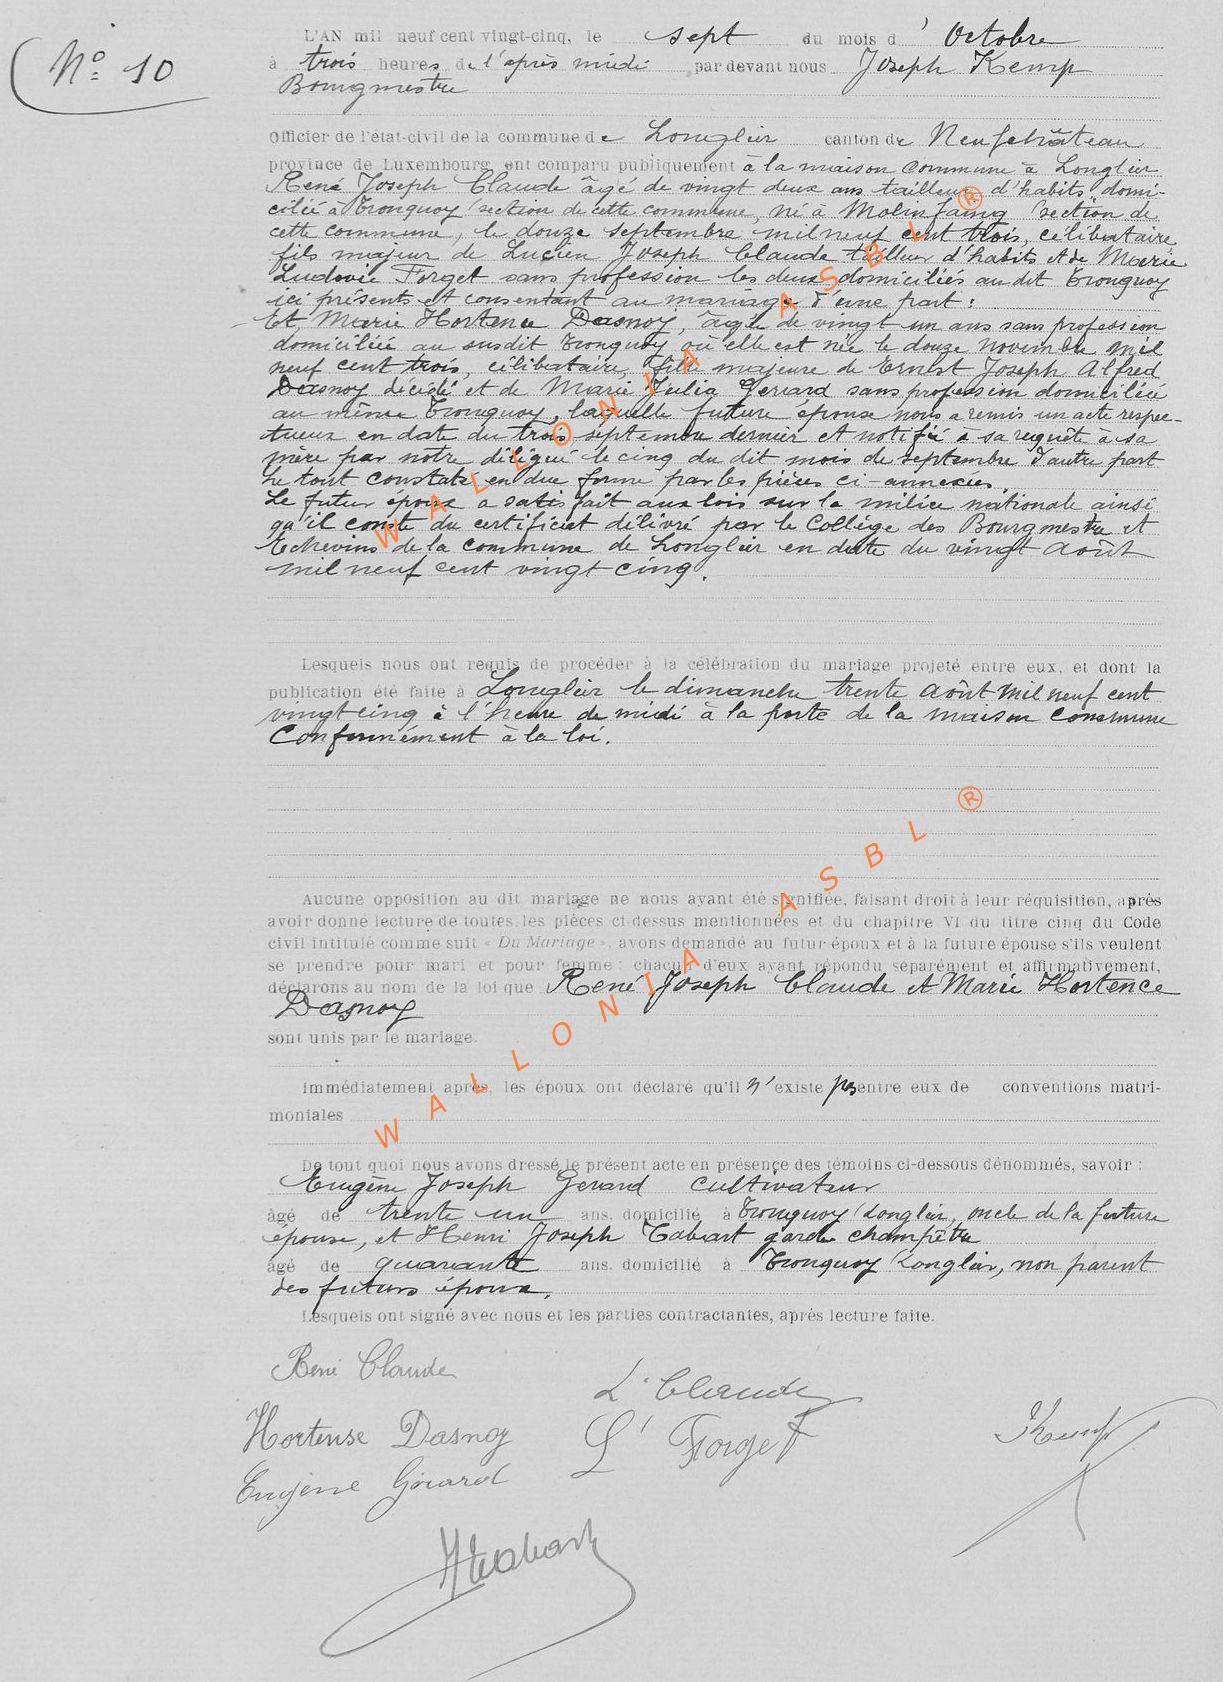 N° 10
L'AN mil neuf cent vingt-cinq, le sept du mois d' Octobre
à trois heures de l'après midi par devant nous Joseph Kemp
Bourgmestre
Officier de l'état-civil de la commune de Longlier canton de Neufchâteau
province de Luxembourg, ont comparu publiquement à la maison commune à Longlier
René Joseph Claude âgé de vingt deux ans tailleur d'habits domi-
cilié à Tronquoy section de cette commune, né à Molinfaing section de
cette commune, le douze septembre mil neuf cent trois, célibataire,
fils majeur de Lucien Joseph Claude tailleur d'habits et de Marie
Ludovie Forget sans profession les deux domiciliés au dit Tronquoy
ici présents et consentant au mariage d'une part :
Et, Marie Hortence Dasnoy, âgée de vingt un ans sans profession
domiciliée au susdit Tronquoy où elle est née le douze novembre mil
neuf cent trois, célibataire, fille majeure de Ernest Joseph Alfred
Dasnoy décédé et de Marie Julia Gerard sans profession domiciliée
au même Tronquoy, laquelle future épouse nous a remis un acte respec-
tueux en date du trois septembre dernier et notifié à sa requête à sa
mère par notre délégué le cinq du dit mois de septembre d'autre part
Le tout constaté en due forme par les pièces ci-annexées.
Le futur époux a satisfait aux lois sur la milice nationale ainsi
qu'il conste du certificat délivré par le Collège des Bourgmestre et
Echevins de la commune de Longlier en date du vingt Août
mil neuf cent vingt cinq.
Lesquels nous ont requis de procéder à la célébration du mariage projeté entre eux, et dont la
publication été faite à Longlier le dimanche trente Août mil neuf cent
vingt cinq à l'heure de midi à la porte de la maison Commune
Conformément à la loi.
Aucune opposition au dit mariage ne nous ayant été signifiée, faisant droit à leur réquisition, après
avoir donné lecture de toutes les pièces ci-dessus mentionnées et du chapitre VI du titre cinq du Code
civil intitulé comme suit « Du Mariage », avons demandé au futur époux et à la future épouse s'ils veulent
se prendre pour mari et pour femme : chacun d'eux ayant répondu séparément et affirmativement,
déclarons au nom de la loi que René Joseph Claude et Marie Hortence
Dasnoy
sont unis par le mariage.
Immédiatement après, les époux ont déclaré qu'il n'existe pas entre eux de conventions matri-
moniales
De tout quoi nous avons dressé le présent acte en présence des témoins ci-dessous dénommés, savoir :
Eugène Joseph Gerard cultivateur
âgé de trente un ans, domicilié à Tronquoy Longlier, oncle de la future
épouse, et Henri Joseph Tabart garde champêtre
âgé de quarante ans, domicilié à Tronquoy Longlier, non parent
des futurs époux.
Lesquels ont signé avec nous et les parties contractantes, après lecture faite.
René Claude
L. Claude
Hortense Dasnoy
L Forget
JKemp
Eugène Gérard
WALLONIA ASBL ®
WALLONIA ASBL ®